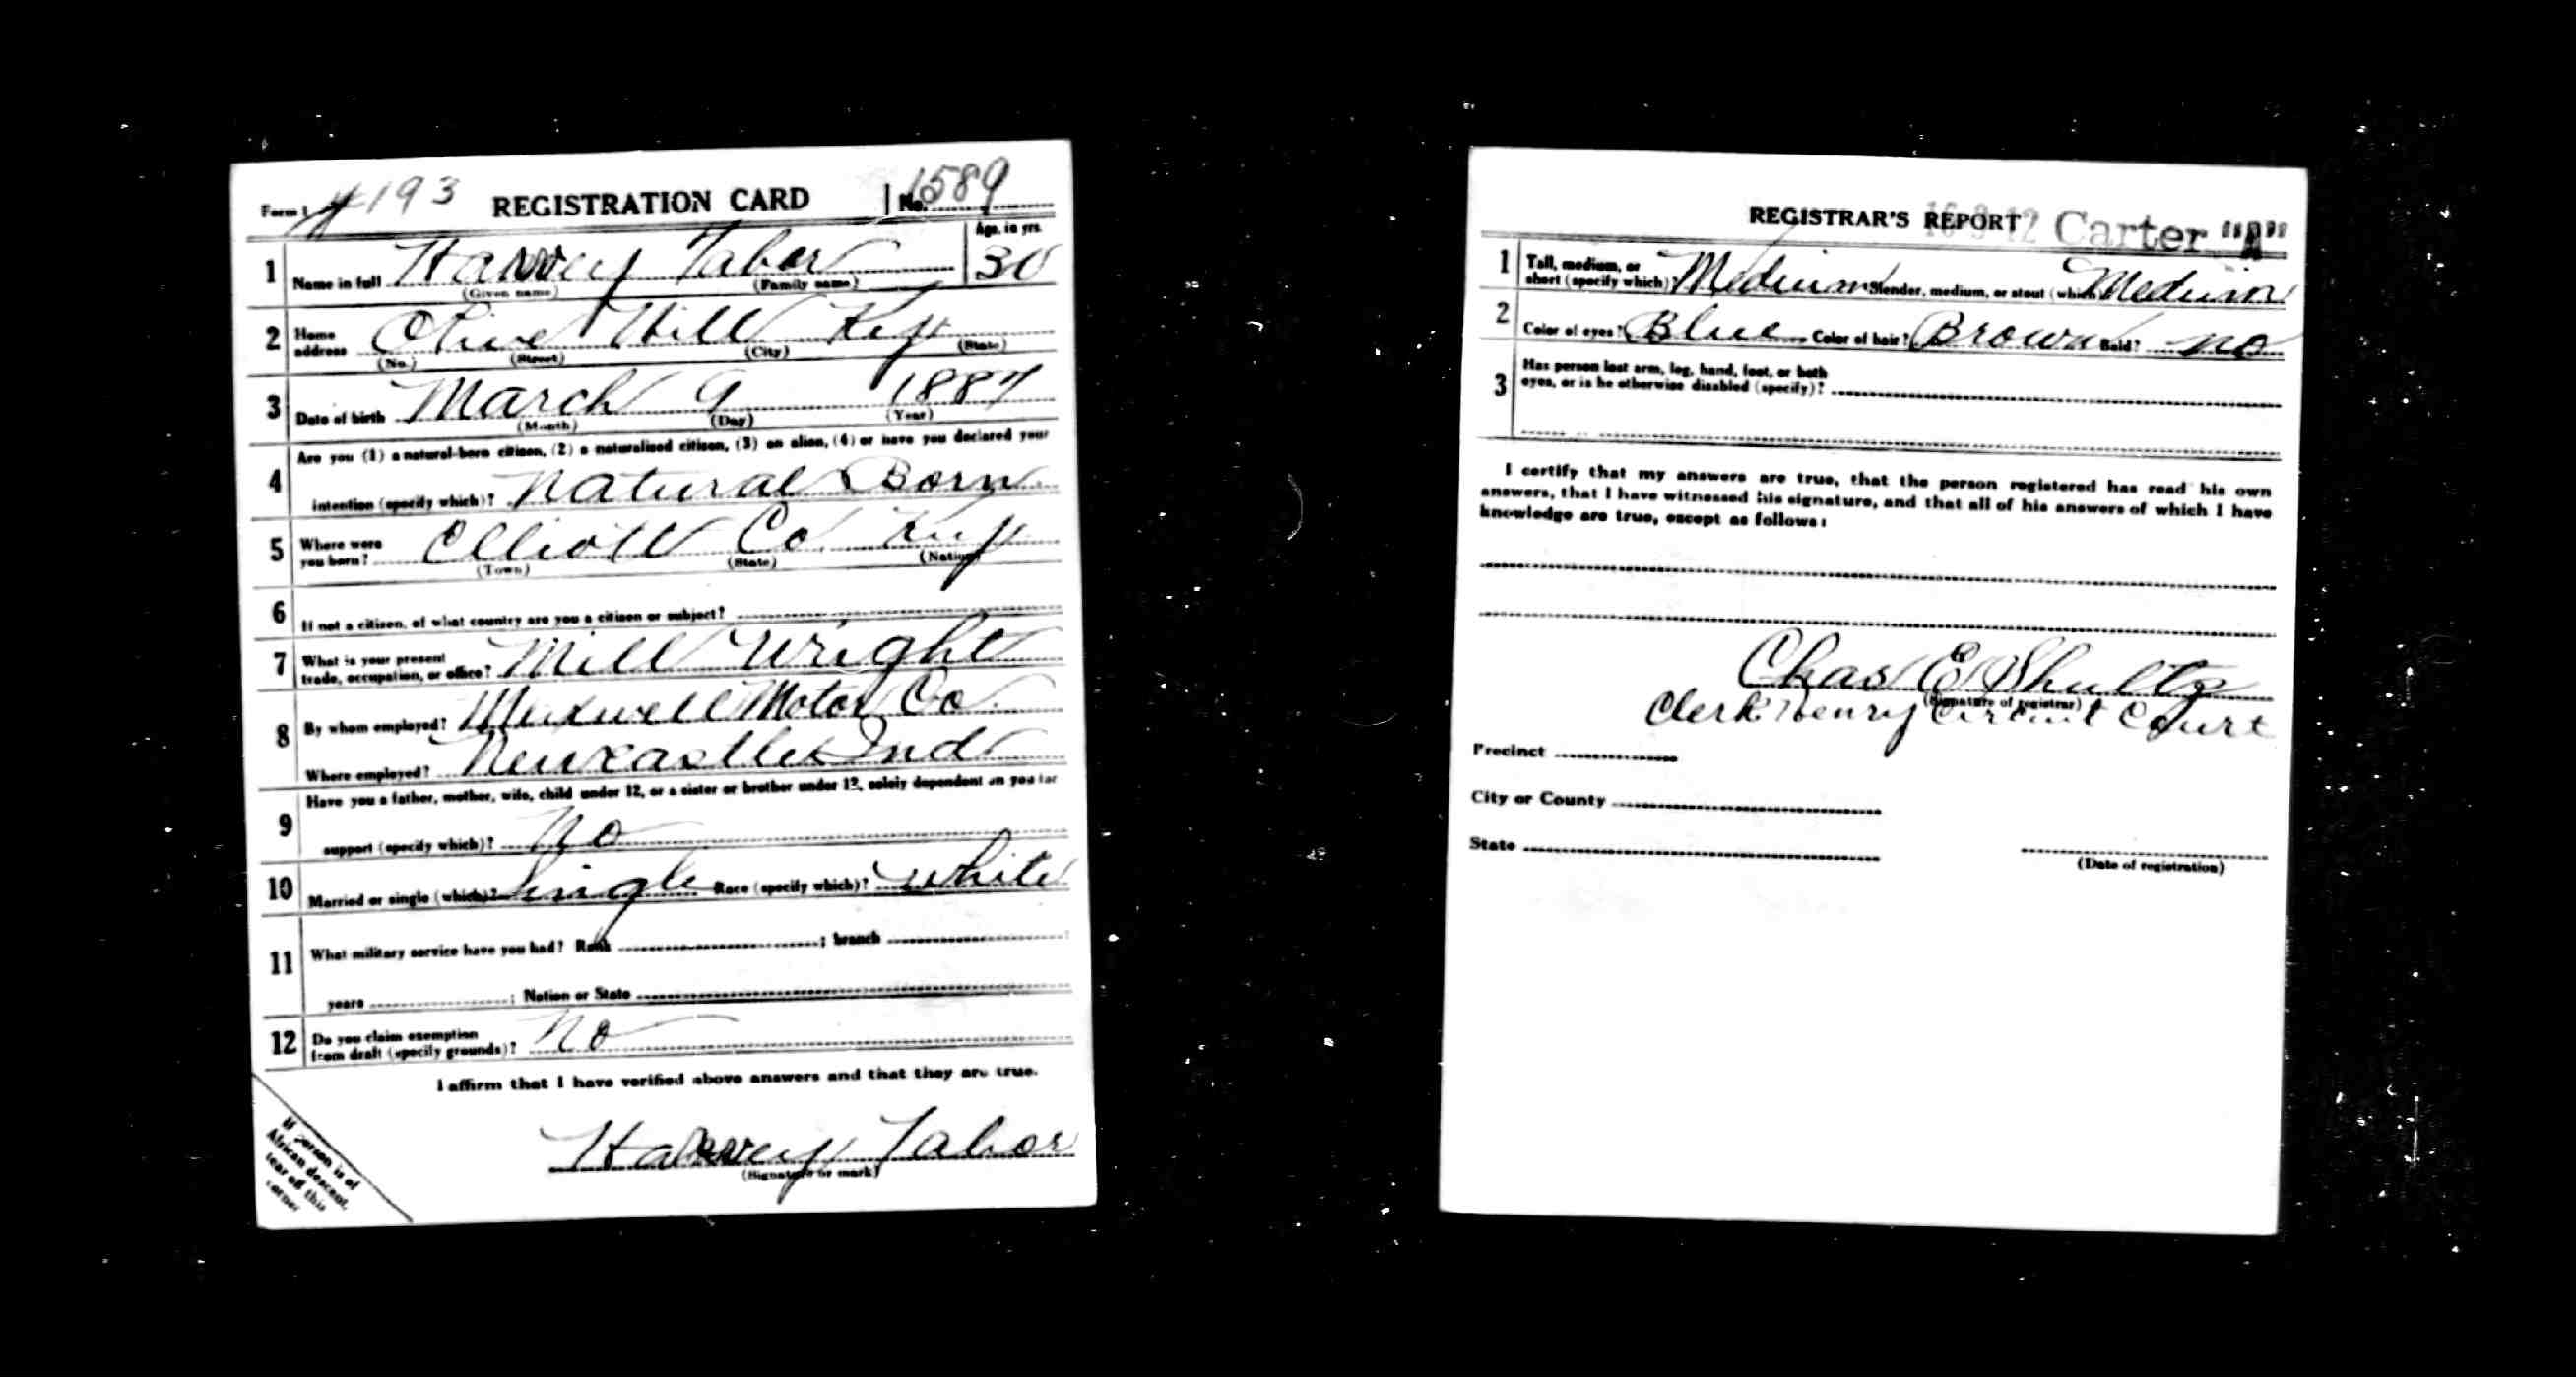 Form 1 #193 REGISTRATION CARD No. 1589
1 Name in full Harvey Tabor Age, in yrs. 30
(Given name) (Family name)
2 Home address Olive Hill Ky
(No.) (Street) (City) (State)
3 Date of birth March 9 1887
(Month) (Day) (Year)
4 Are you (1) a natural-born citizen, (2) a naturalized citizen, (3) an alien, (4) or have you declared your
intention (specify which)? Natural Born
5 Where were you born? Elliott Co. Ky
(Town) (State) (Nation)
6 If not a citizen, of what country are you a citizen or subject?
7 What is your present trade, occupation, or office? Mill Wright
8 By whom employed? Maxwell Motor Co.
Where employed? Newcastle Ind
9 Have you a father, mother, wife, child under 12, or a sister or brother under 12, solely dependent on you for
support (specify which)? No
10 Married or single (which)? Single Race (specify which)? White
11 What military service have you had? Rank ; branch
years ; Nation or State
12 Do you claim exemption from draft (specify grounds)? No
I affirm that I have verified above answers and that they are true.
Harvey Tabor
(Signature or mark)
If person is of
African descent,
tear off this
corner
REGISTRAR'S REPORT Carter "A"
1 Tall, medium, or short (specify which)? Medium Slender, medium, or stout (which)? Medium
2 Color of eyes? Blue Color of hair? Brown Bald? No
3 Has person lost arm, leg, hand, foot, or both
eyes, or is he otherwise disabled (specify)?
I certify that my answers are true, that the person registered has read his own
answers, that I have witnessed his signature, and that all of his answers of which I have
knowledge are true, except as follows:
Chas E Shultz
(Signature of registrar)
Clerk Henry Circuit Court
Precinct
City or County
State
(Date of registration)